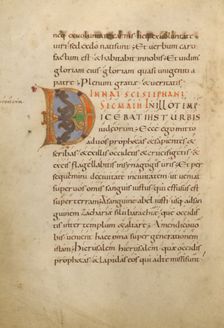 neq; ex voluntate carnis neq; ex voluntate
viri sed exdo nati sunt; Et verbum caro
factum est & habitavit innobis. Et vidimus
gloriam eius gloriam quasi unigeniti a
patre Plenum gratiae & veritatis;
IN NAT SCI STEPHANI
SEC MATH IN ILLO TEMP
DICEBAT IHS TURBIS
iudeorum; Ecce ego mitto
ad vos prophetas & sapientes &
scribas & ex illis occidetis & crucifigetis &
ex eis flagellabitis insynagogis vris & per
sequemini decivitate incivitatem ut veniat
super vos omnis sanguis iustus qui effusus est
super terram A sanguine abel iusti usq; ad san
guinem zachariae filii barachiae quem occidis
tis inter templum & altare; Amen dico vo
bis venient haec omnia super generationem
istam; Hierusalem hierusalem quae occidis
prophetas & lapidas eos qui adte missi sunt